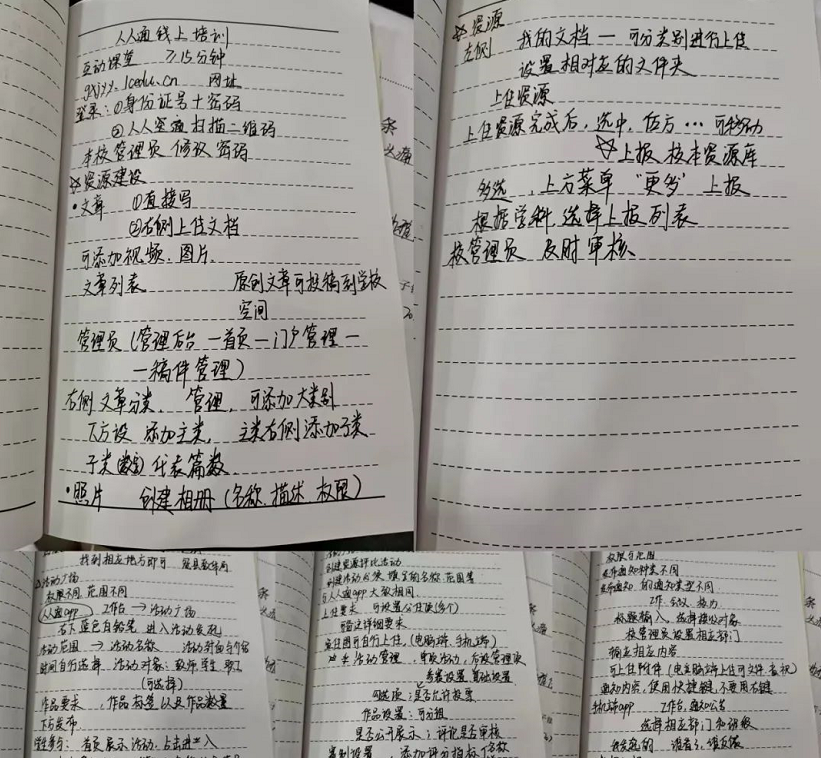 人人通线上培训
互动课堂 ≥15分钟
gxjyy.lcedu.cn 网址
登录:①身份证号+密码
②人人空通扫描二维码
本校管理员修改密码
☆资源建设
·文章 ①直接写
②右侧上传文档
可添加视频、图片、
文章列表 原创文章可投稿到学校
空间
管理员(管理后台—首页—门户管理—
—稿件管理)
右侧文章分类、管理,可添加大类别
下方设添加主类,主类右侧添加子类
子类(数字)代表篇数、
·照片 创建相册(名称、描述、权限)
☆资源
左侧 我的文档—可分类别进行上传
设置相对应的文件夹
上传资源
上传资源完成后,选中,右方…可移动
☆上报校本资源库
多选,上方菜单“更多”上报
根据学科选择上报列表
校管理员 及时审核
找到相应地方即可
活动广场
权限不同,范围不同
人人通app 工作台→活动广场
右下蓝色白铅笔 进入活动发起
活动范围→活动名称
时间自行选择 活动对象:教师、学生、职工
(可选择)
作品要求,作品标签以及作品数量
下方发布
学生参与:首页展示活动,点击进入
创建资源评比活动
与人人通app大致相同
上传要求 可设置公住度(多个)
可自行上传,(电脑端、手机端)
活动管理,审核活动,后设管理次
奖赛设置 基础设置
可选项:是否允许投票
作品设置:可分组
是否公开展示;评论是否审核
类别设置,添加评分指标
权限与范围
发布通知种类不同
发布通知,的通知类型不同
工作、会议、格力
标题输入,选择接收对象
校管理员设置相应部门
输入相应内容
可上传附件(电脑端上传可文件、音视)
通知内容,使用快捷键,不要用右键
手机端app 工作台,通知公告
选择相应部门和班级
我发起的